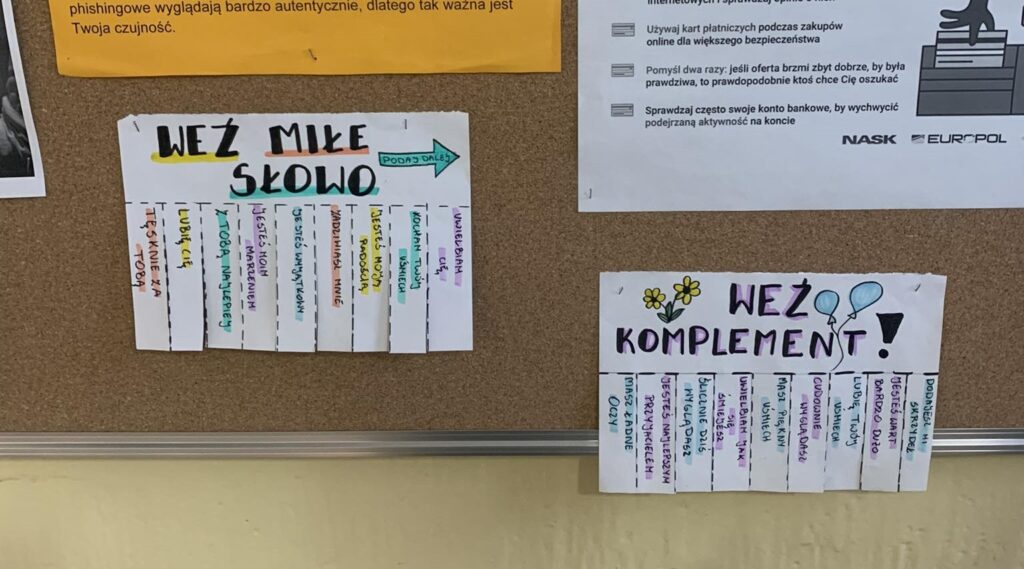 phishingowe wyglądają bardzo autentycznie, dlatego tak ważna jest
Twoja czujność.
Używaj kart płatniczych podczas zakupów
online dla większego bezpieczeństwa
Pomyśl dwa razy: jeśli oferta brzmi zbyt dobrze, by była
prawdziwa, to prawdopodobnie ktoś chce Cię oszukać
Sprawdzaj często swoje konto bankowe, by wychwycić
podejrzaną aktywność na koncie
NASK
EUROPOL
WEŹ MIŁE
SŁOWO
PODAJ DALEJ
TĘSKNIE ZA
TOBĄ
LUBIĘ CIĘ
Z TOBĄ NAJLEPIEJ
JESTEŚ MOIM
MARZENIEM
JESTEŚ WYJĄTKOWY
ZADZIWIASZ MNIE
JESTEŚ MOJĄ
RADOŚCIĄ
KOCHAM TWÓJ
UŚMIECH
UWIELBIAM
CIĘ
WEŹ
KOMPLEMENT!
MASZ ŁADNE
OCZY
JESTEŚ NAJLEPSZYM
PRZYJACIELEM
ŚLICZNIE DZIŚ
WYGLĄDASZ
UWIELBIAM JAK
SIĘ
ŚMIEJESZ
MASZ PIĘKNY
UŚMIECH
CUDOWNIE
WYGLĄDASZ
LUBIĘ TWÓJ
UŚMIECH
JESTEŚ WART
BARDZO DUŻO
DODAJESZ MI
SKRZYDEŁ